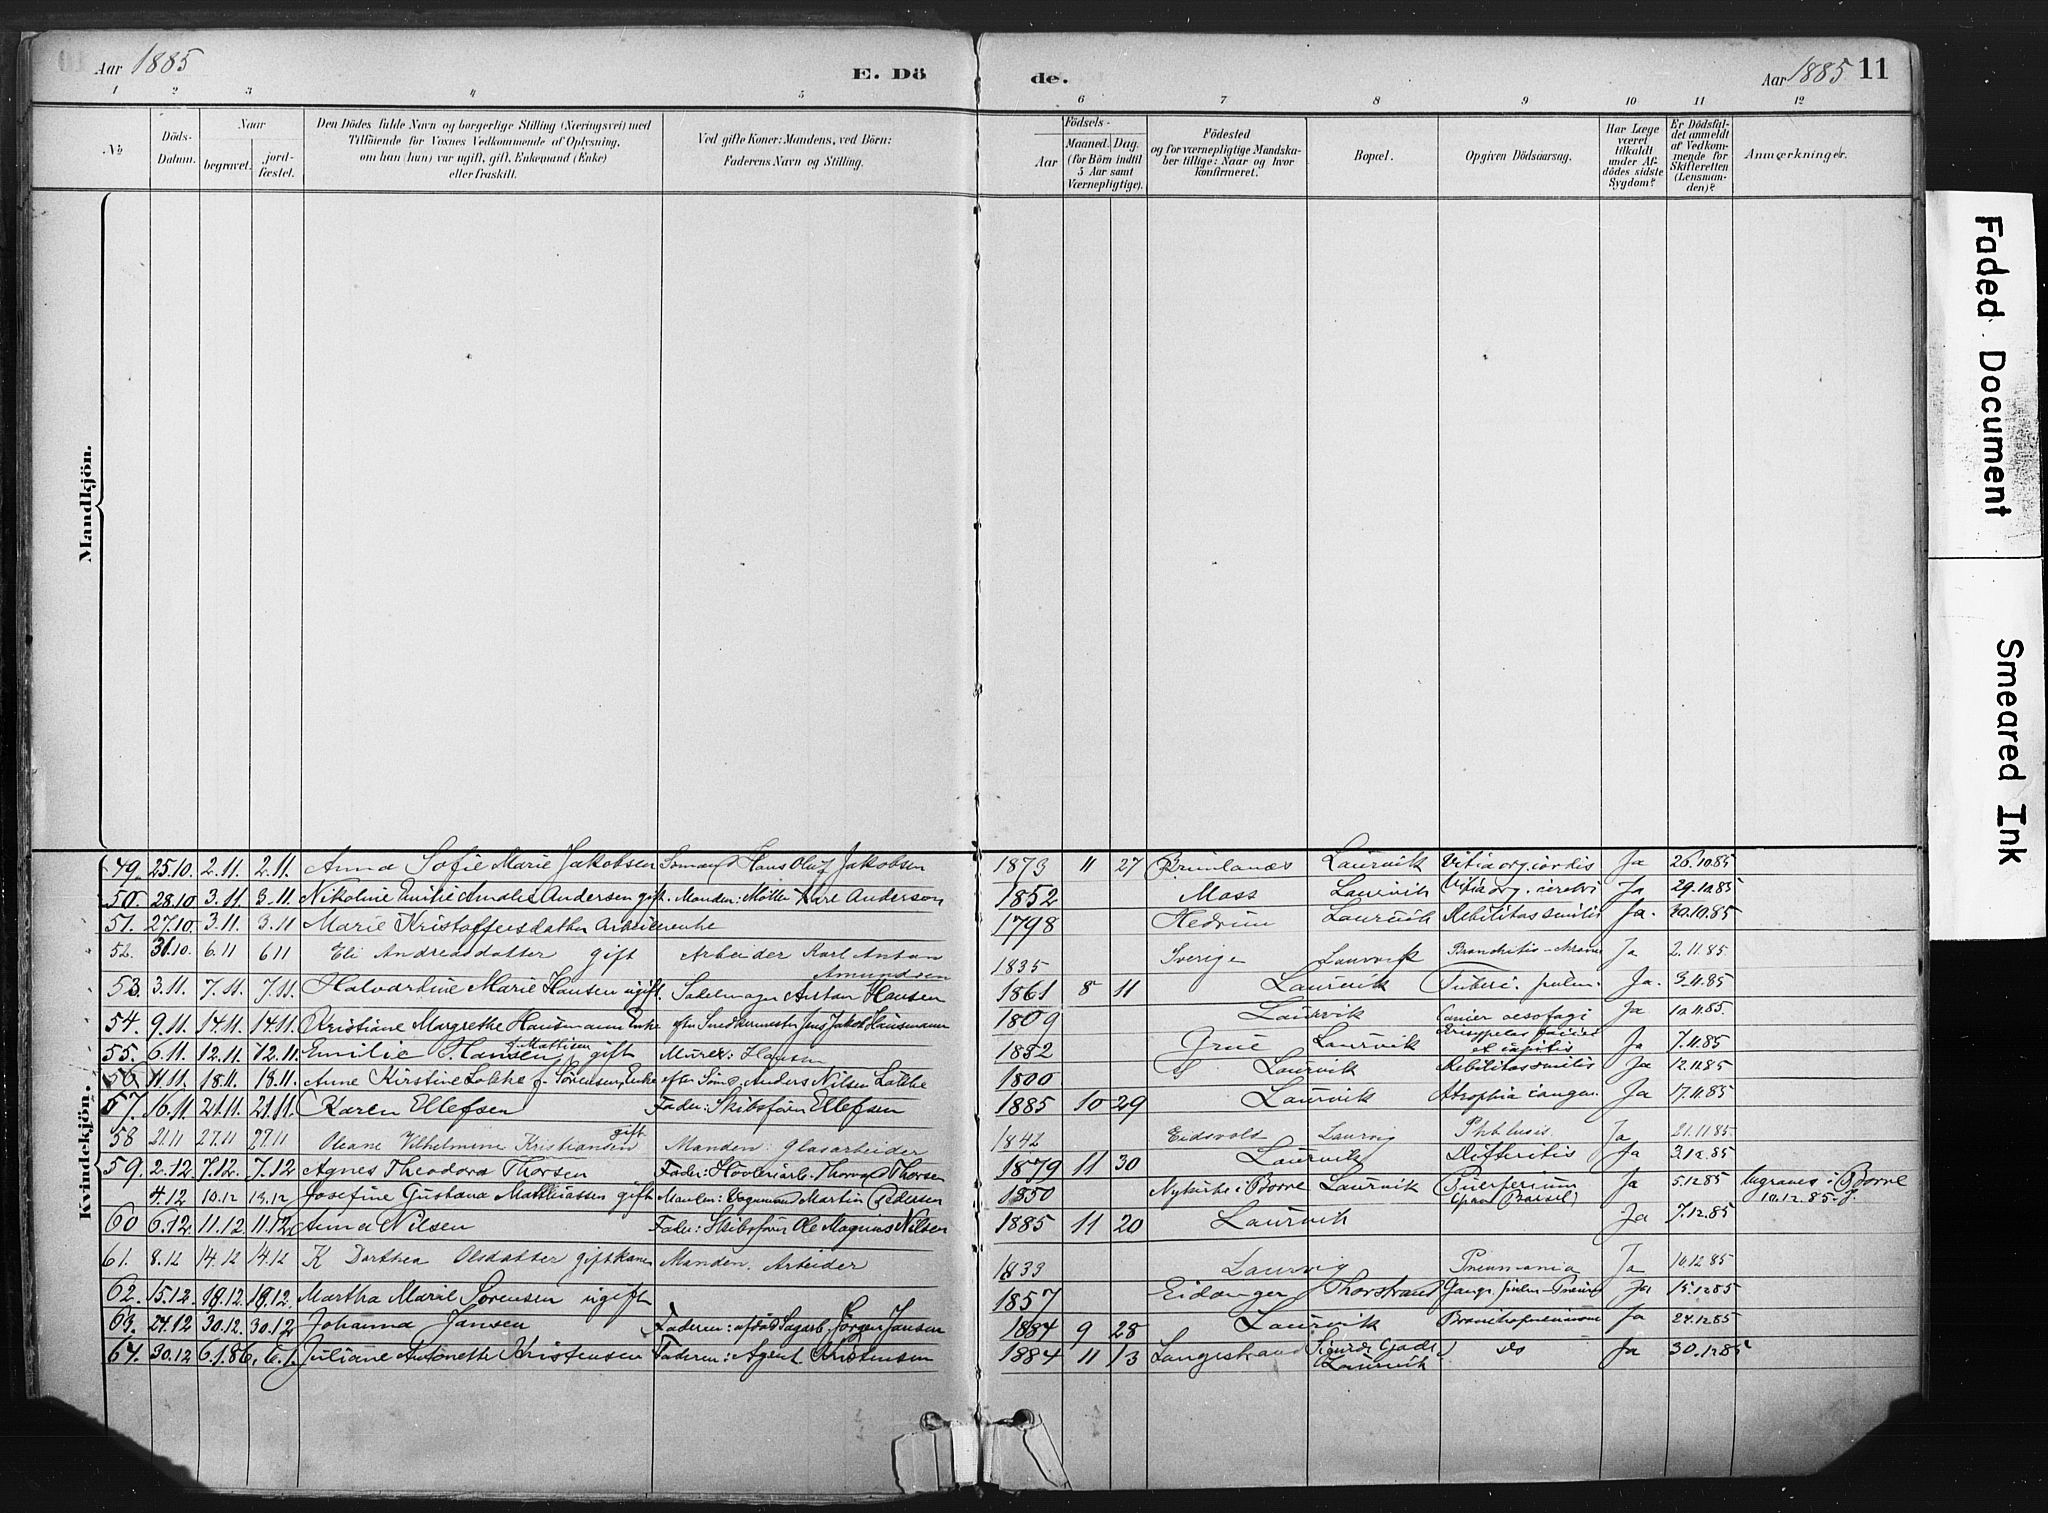 Aar 1885
E. Dö
de.
Aar 1885.
11
1 2 3 4 5 6 7 8 9 10 11 12
№
Döds-
Datum.
Naar
begravet.
jord-
fæstet.
Den Dödes fulde Navn og borgerlige Stilling (Næringsvei) med
Tilföiende for Voxnes Vedkommende af Oplysning,
om han (hun) var ugift, gift, Enkemand (Enke)
eller fraskilt.
Ved gifte Koner: Mandens, ved Börn:
Faderens Navn og Stilling.
Födsels-
Aar
Maaned. Dag.
(for Börn indtil
5 Aar samt
Værnepligtige).
Födested
og for værnepligtige Mandska-
ber tillige: Naar og hvor
konfirmeret.
Bopæl.
Opgiven Dödsaarsag.
Har Læge
været
tilkaldt
under Af-
dödes sidste
Sygdom?
Er Dödsfal-
det anmeldt
af Vedkom-
mende for
Skifteretten
(Lensman-
den)?
Anmærkninger.
Mandkjön.
Kvindekjön.
49. 25.10. 2.11. 2.11. Anna Sofie Marie Jakobsen Sömand Hans Oluf Jakobsen 1873 11 27 Brunlanæs Laurvik Vitia org. cordis Ja 26.10.85
50. 28.10 3.11. 3.11. Nikoline Emilie Amalie Andersen gift. Manden: Möller Kare Anderson 1852 Moss Laurvik Vitia org. cerebri Ja 29.10.85
51. 27.10. 3.11. 3.11 Marie Kristoffersdatter Arbeiderenke 1798 Hedrum Laurvik Debilitas senilis Ja. 30.10.85
52. 31.10. 6.11 6 11 Eli Andreasdatter gift Arbeider Karl Anton Amundsen 1835 Sverige Laurvik Bronchitis Ja 2.11.85
53. 3.11. 7.11. 7.11. Halvardine Marie Hansen ugift. Sadelmager Anton Hansen 1861 8 11 Laurvik Tuberc. pulm. Ja. 3.11.85
54. 9.11. 14.11. 14.11. Kristiane Margrethe Hausmann Enke efter Snedkermester Jens Jakob Hausmann 1809 Laurvik Cancer oesofagi Ja 10.11.85.
55. 6.11. 12.11. 12.11. Emilie Hansen f. Mattisen gift Murer: Hansen 1852 Grue Laurvik Erisypelas faciei et capitis Ja 7.11.85
56. 11.11. 18.11. 18.11. Anne Kirstine Lökke f. Sörensen, Enke efter Söm. Anders Nilsen Lökke 1800 Laurvik Debilitas senilis Ja 12.11.85
57. 16.11. 21.11. 21.11. Karen Ellefsen Fader: Skibsförer Ellefsen 1885 10 29 Laurvik Atrophia congen. Ja 17.11.85
58 21.11 27.11 27.11 Oleane Vilhelmine Kristiansen gift Manden. Glasarbeider 1842 Eidsvold Laurvig Phthisis Ja 21.11.85
59. 2.12. 7.12. 7.12 Agnes Theodora Thorsen Fader: Hövleriarb. Thorvald Thorsen 1879 11 30 Laurvik Difthritis Ja 3.12.85
4.12 10.12 13.12 Josefine Gustava Matthiassen gift Manden: Vognmand Martin Pedersen 1850 Nykirke i Borre Laurvik Puerperium (paa Barsel) Ja 5.12.85 begraves i Borre 10.12.85.
60 6.12. 11.12. 11.12. Anna Nilsen Fader: Skibsförer Ole Magnus Nilsen 1885 11 20 Laurvik Ja 7.12.85
61. 8.12 14.12 14.12 K Dorthea Olsdatter gift kone Manden. Arbeider 1833 Laurvig Pneumonia Ja 10.12.85
62. 15.12. 19.12. 19.12. Martha Marie Sörensen ugift 1857 Eidanger Thorstrand Gangr. pulm. Ja 15.12.85
63. 24.12 30.12. 30.12 Johanna Jansen Faderen: afdöd Sagarb. Jörgen Jansen 1884 9 28 Laurvik Bronchopneumoni Ja 24.12.85
64. 30.12 6.1.86. 6.1. Juliane Antonette Kristensen Faderen: Agent Kristensen 1884 11 13 Langestrand Laurvik do Ja 30.12.85
Faded Document
Smeared Ink